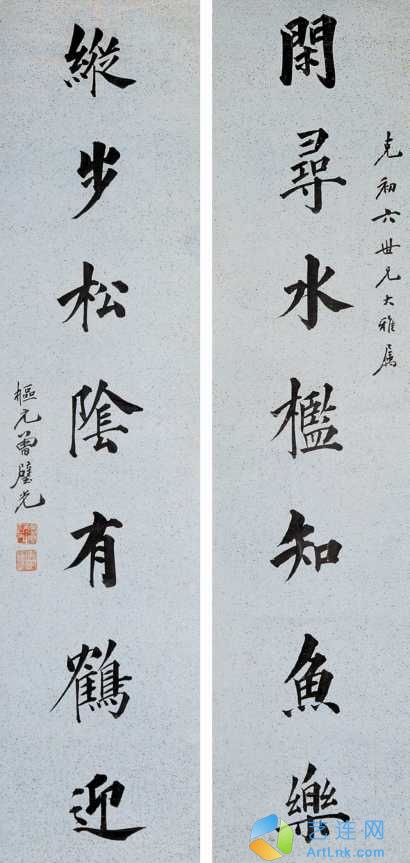 克初六世兄大雅属
閑尋水檻知魚樂
縱步松陰有鶴迎
樞元曾璧光
艺连网
ArtLnk.com